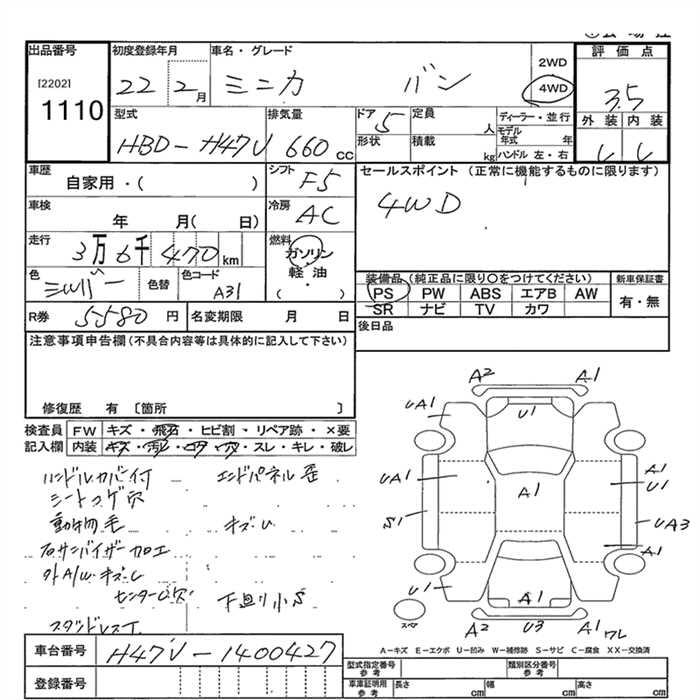 出品番号 初度登録年月 車名・グレード 2WD 評価点
[2202] 22 2月 ミニカ バン 4WD 3.5
1110
型式 排気量 ドア 5 定員 人 ディーラー・並行 外装 内装
HBD-H47V 660cc 形状 積載 kg モデル年式 年 ハンドル 左・右
車歴 シフト F5 セールスポイント (正常に機能するものに限ります)
自家用・( ) 4WD
車検 年 月( 日) 冷房 AC
走行 3万6千470km 燃料 ガソリン・軽油 ( )
色 シルバー 色替 色コード A31
装備品 (純正品に限り○をつけてください) 新車保証書
PS PW ABS エアB AW 有・無
SR ナビ TV カワ
R券 5580円 名変期限 月 日 後日品
注意事項申告欄 (不具合内容等は具体的に記入して下さい)
修復歴 有 〔箇所 〕
検査員 FW キズ・飛石・ヒビ割・リペア跡・×要
記入欄 内装 キズ・汚レ・コゲ・穴・スレ・キレ・破レ
ハンドルカバー付 エンドパネル歪
シートコゲ穴
動物毛 キズU
右サンバイザー加工
外A/Wキズ
センター口穴 下廻り小S
スタッドレス
A2 A1
UA1 U1
UA1 A1 A1
U1
S1 UA3
A1
U1 A1
スペア A2 U3 A1 ワレ
A-キズ E-エクボ U-凹み W-補修跡 S-サビ C-腐食 XX-交換済
車台番号 H47V-1400427
登録番号
型式指定番号 参考 類別区分番号 参考
車庫証明用 参考 長さ cm 幅 cm 高さ cm